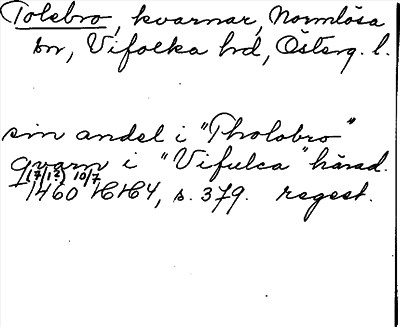 Tolebro, kvarnar, Normlösa
sn, Vifolka hd, Österg. l.
sin andel i "Tholobro"
qvarn i "Vifulca" härad.
(7/12) 10/7
1460 HH4, s. 379. regest.